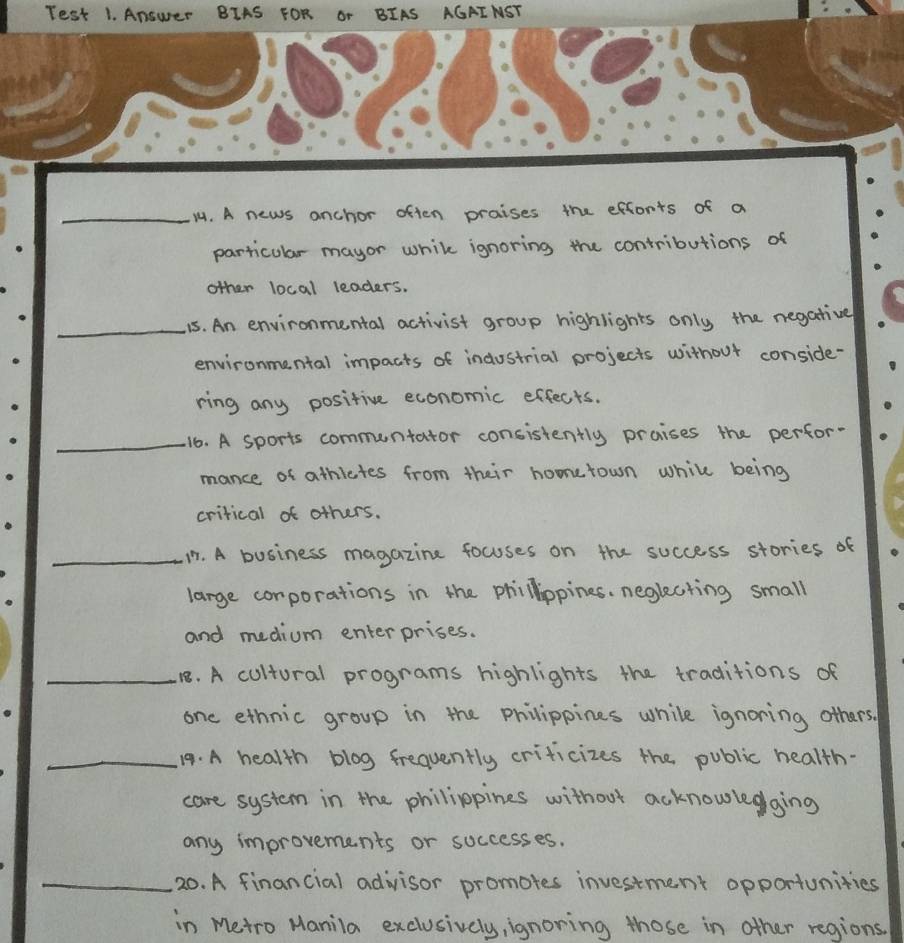 Test 1. Answer BIAS FOR or BIAS AGAINST
________14. A news anchor often praises the efforts of a
particular mayor while ignoring the contributions of
other local leaders.
________15. An environmental activist group highlights only the negative
environmental impacts of industrial projects without conside-
ring any positive economic effects.
________16. A sports commentator consistently praises the perfor-
mance of athletes from their hometown while being
critical of others.
________17. A business magazine focuses on the success stories of
large corporations in the Phillippines. neglecting small
and medium enterprises.
________18. A cultural programs highlights the traditions of
one ethnic group in the Philippines while ignoring others.
________19. A health blog frequently criticizes the public health-
care system in the philippines without acknowledging
any improvements or successes.
________20. A financial advisor promotes investment opportunities
in Metro Manila exclusively, ignoring those in other regions.